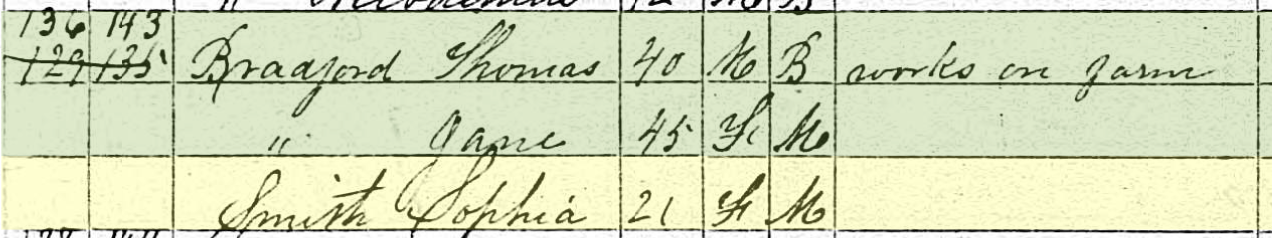 136 143
129 135 Bradford Thomas 40 M B works on farm
" Jane 45 F M
Smith Sophia 21 F M